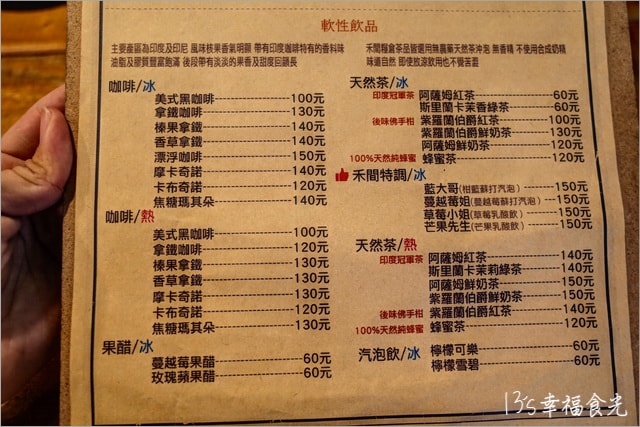 軟性飲品
主要產區為印度及印尼 風味核果香氣明顯 帶有印度咖啡特有的香料味
油脂及膠質豐富飽滿 後段帶有淡淡的果香及甜度回韻長
咖啡/冰
美式黑咖啡 100元
拿鐵咖啡 130元
榛果拿鐵 140元
香草拿鐵 140元
漂浮咖啡 150元
摩卡奇諾 140元
卡布奇諾 120元
焦糖瑪其朵 140元
咖啡/熱
美式黑咖啡 100元
拿鐵咖啡 120元
榛果拿鐵 130元
香草拿鐵 130元
摩卡奇諾 130元
卡布奇諾 120元
焦糖瑪其朵 130元
果醋/冰
蔓越莓果醋 60元
玫瑰蘋果醋 60元
禾間糧倉茶品皆選用無農藥天然茶沖泡 無香精 不使用合成奶精
味道自然 即使放涼飲用也不覺苦澀
天然茶/冰
印度冠軍茶 阿薩姆紅茶 60元
斯里蘭卡茉香綠茶 60元
後味佛手柑 紫羅蘭伯爵紅茶 100元
紫羅蘭伯爵鮮奶茶 130元
阿薩姆鮮奶茶 120元
100%天然純蜂蜜 蜂蜜茶 120元
禾間特調/冰
藍大哥(柑藍蘇打汽泡) 150元
蔓越莓姐(蔓越莓蘇打汽泡) 150元
草莓小姐(草莓乳酸飲) 150元
芒果先生(芒果乳酸飲) 150元
天然茶/熱
印度冠軍茶 阿薩姆紅茶 140元
斯里蘭卡茉莉綠茶 140元
阿薩姆鮮奶茶 150元
紫羅蘭伯爵鮮奶茶 150元
後味佛手柑 紫羅蘭伯爵紅茶 140元
100%天然純蜂蜜 蜂蜜茶 120元
汽泡飲/冰
檸檬可樂 60元
檸檬雪碧 60元
13's幸福食光